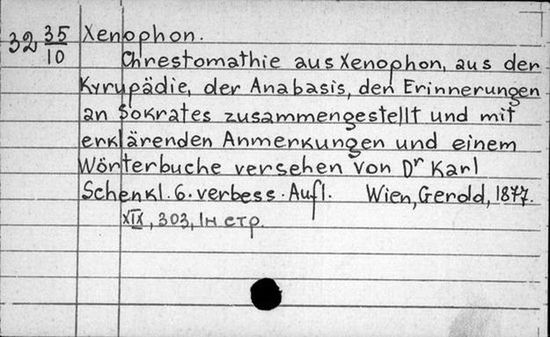 32 35/10 Xenophon.
Chrestomathie aus Xenophon, aus der
Kyrupädie, der Anabasis, den Erinnerungen
an Sokrates zusammengestellt und mit
erklärenden Anmerkungen und einem
Wörterbuche versehen von Dr Karl
Schenkl. 6. verbess. Aufl. Wien, Gerold, 1877.
XIX, 303, 1н стр.